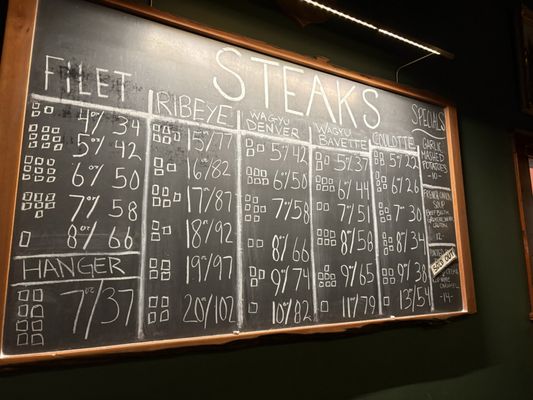 STEAKS
FILET
4oz 34
5oz 42
6oz 50
7oz 58
8oz 66
HANGER
7oz/37
RIBEYE
15/77
16/82
17/87
18/92
19/97
20/102
WAGYU
DENVER
5/42
6/50
7/58
8/66
9/74
10/82
WAGYU
BAVETTE
5/37
6/44
7/51
8/58
9/65
11/79
COULOTTE
5/22
6/26
7/30
8/34
9/38
13/54
SPECIALS
GARLIC
MASHED
POTATOES
-10-
FRENCH ONION
SOUP
12
SOLD OUT
-14-